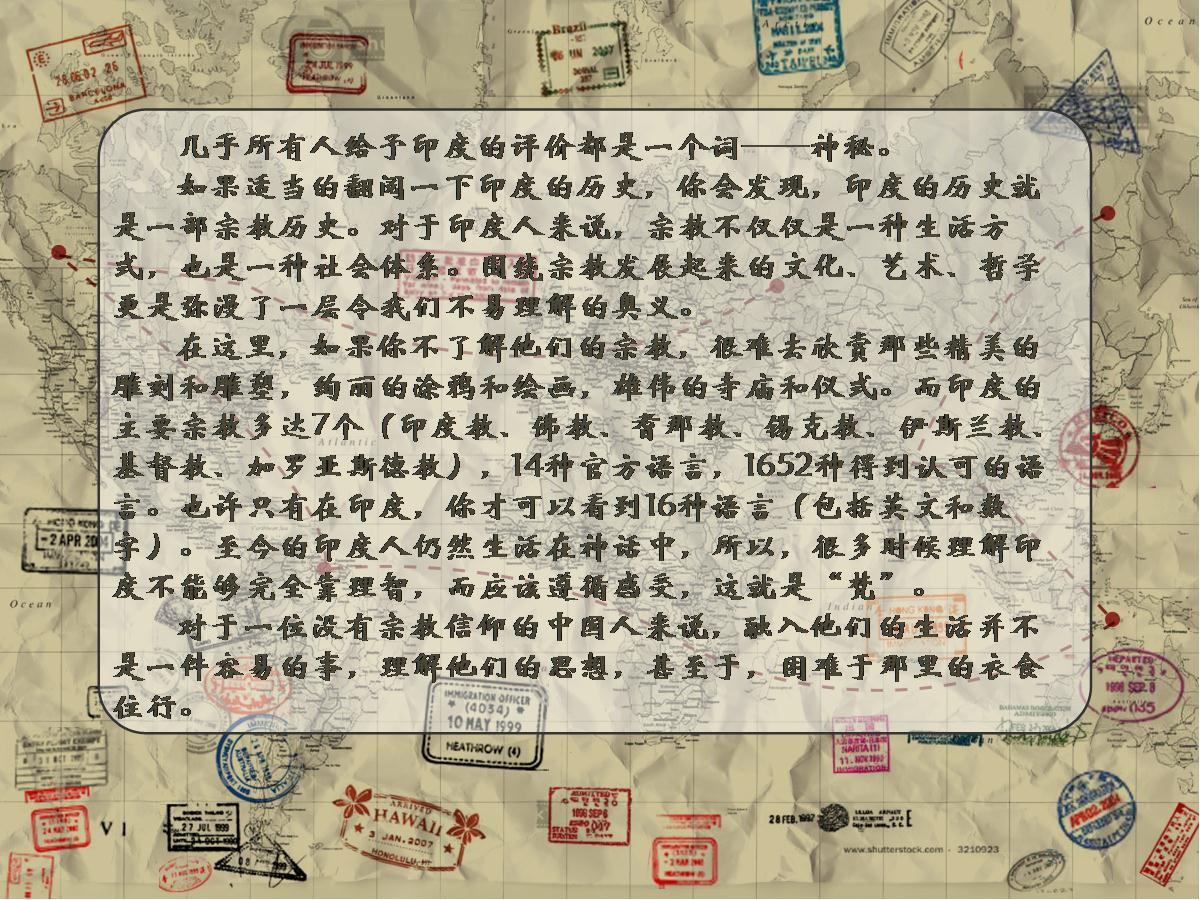 几乎所有人给予印度的评价都是一个词——神秘。
如果适当的翻阅一下印度的历史，你会发现，印度的历史就
是一部宗教历史。对于印度人来说，宗教不仅仅是一种生活方
式，也是一种社会体系。围绕宗教发展起来的文化、艺术、哲学
更是弥漫了一层令我们不易理解的奥义。
在这里，如果你不了解他们的宗教，很难去欣赏那些精美的
雕刻和雕塑，绚丽的涂鸦和绘画，雄伟的寺庙和仪式。而印度的
主要宗教多达7个（印度教、佛教、耆那教、锡克教、伊斯兰教、
基督教、加罗亚斯德教），14种官方语言，1652种得到认可的语
言。也许只有在印度，你才可以看到16种语言（包括英文和数
字）。至今的印度人仍然生活在神话中，所以，很多时候理解印
度不能够完全靠理智，而应该遵循感受，这就是“梵”。
对于一位没有宗教信仰的中国人来说，融入他们的生活并不
是一件容易的事，理解他们的思想，甚至于，困难于那里的衣食
住行。
Brazil
BARCELONA
HEATHROW (4)
Atlantic
HONG KONG
2 APR 2004
Ocean
Indian
HONG KONG
IMMIGRATION OFFICER
(4034)
10 MAY 1999
HEATHROW (4)
DEPARTED
1998 SEP. 8
NARITA(1)
IMMIGRATION
27 JUL 1999
ARRIVED
HAWAII
3 JAN. 2007
HONOLULU, HI
ADMITTED
1998 SEP 6
28 FEB. 1997
www.shutterstock.com · 3210923